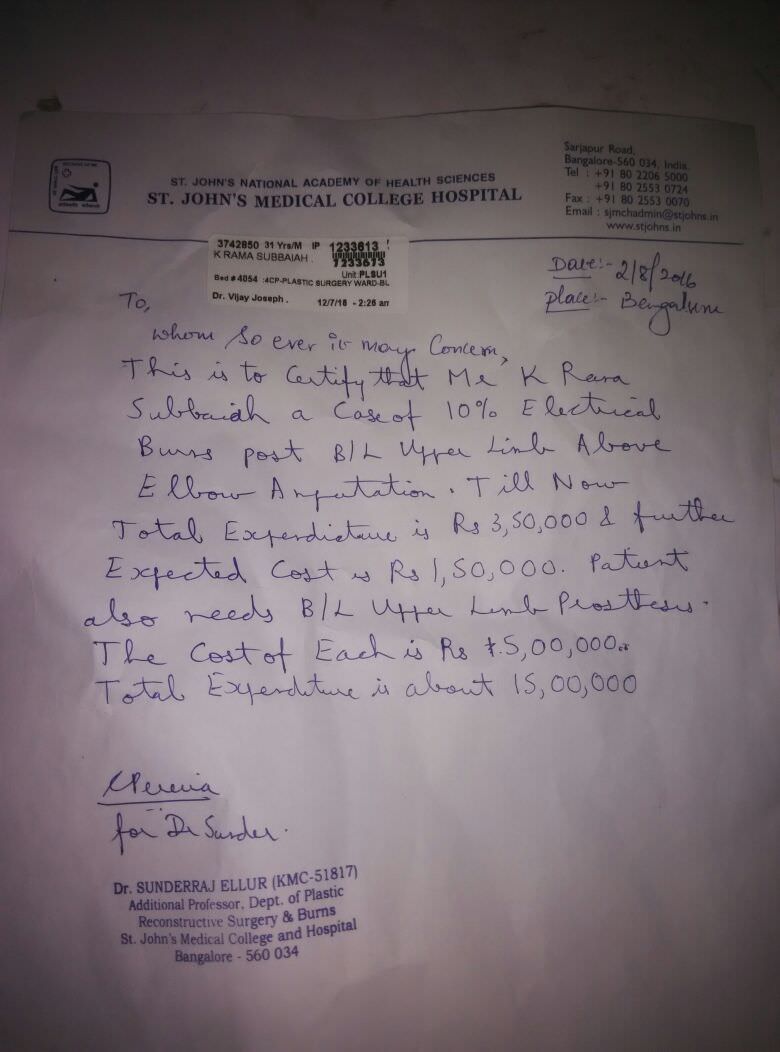 ST. JOHN'S NATIONAL ACADEMY OF HEALTH SCIENCES
ST. JOHN'S MEDICAL COLLEGE HOSPITAL
Sarjapur Road,
Bangalore-560 034, India.
Tel : +91 80 2206 5000
+91 80 2553 0724
Fax : +91 80 2553 0070
Email : sjmchadmin@stjohns.in
www.stjohns.in
3742850 31 Yrs/M IP 1233613
K RAMA SUBBAIAH .
Unit:PLSU1
Bed # 4054 :4CP-PLASTIC SURGERY WARD-BL
Dr. Vijay Joseph . 12/7/16 - 2:26 am
Date:- 2/8/2016
place:- Bengaluru
To,
whom so ever it may Concern,
This is to Certify that Mr K Rama
Subbaiah a Case of 10% Electrical
Burns post B/L Upper Limb Above
Elbow Amputation. Till Now
Total Expendicture is Rs 3,50,000 & further
Expected Cost is Rs 1,50,000. Patient
also needs B/L Upper Limb Prosthesis.
The Cost of Each is Rs 5,00,000.
Total Expenditure is about 15,00,000
for Dr Sunder.
Dr. SUNDERRAJ ELLUR (KMC-51817)
Additional Professor, Dept. of Plastic
Reconstructive Surgery & Burns
St. John's Medical College and Hospital
Bangalore - 560 034